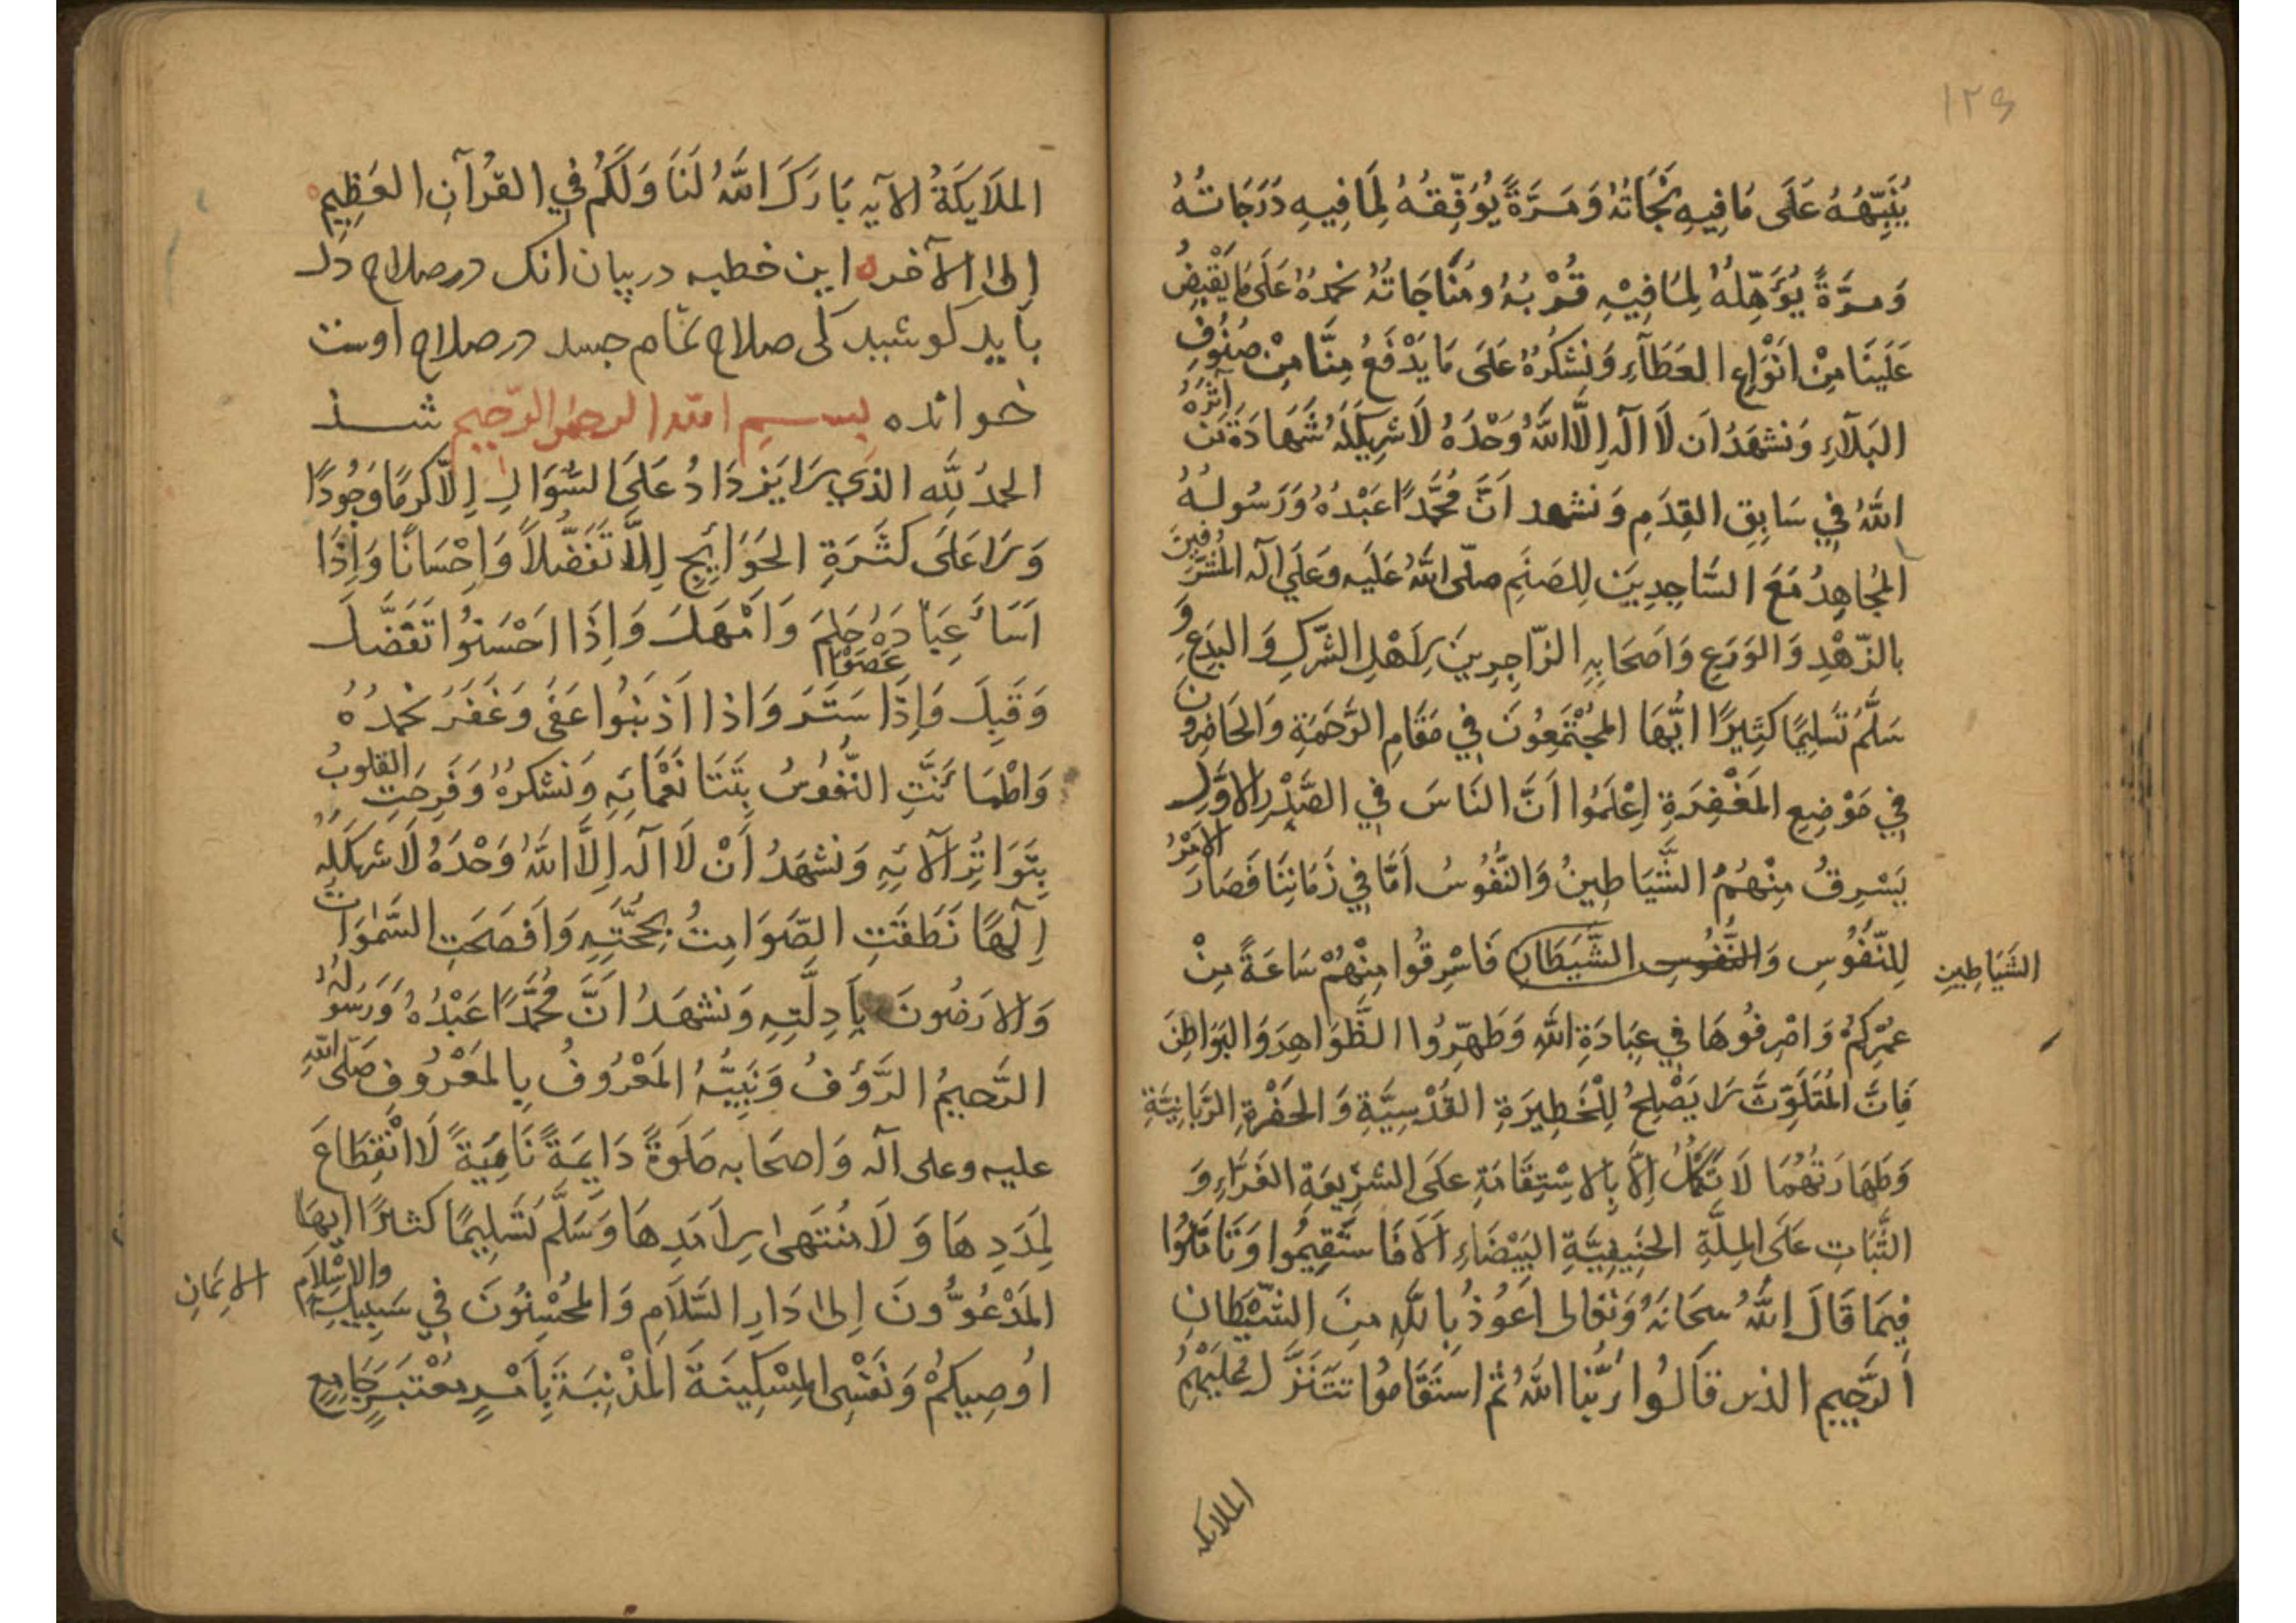 ١٢٤
يُنَبِّهُهُ عَلَى مَا فِيهِ نَجَاتُهُ وَمَرَّةً يُوَفِّقُهُ لِمَا فِيهِ دَرَجَاتُهُ
وَمَرَّةً يُؤَهِّلُهُ لِمَا فِيْهِ قُرْبُهُ وَمُنَاجَاتُهُ نَحْمَدُهُ عَلَى مَا يَقْبِضُ
عَلَيْنَا مِنْ اَنْوَاعِ العَطَآءِ وَنَشْكُرُهُ عَلَى مَا يَدْفَعُ مِنَّا مِنْ صُنُوفِ
البَلَآءِ وَنَشْهَدُ اَن لَا اِلَهَ اِلَّا اللهُ وَحْدَهُ لَا شَرِيكَ لَهُ شَهَادَةَ مَن آثَرَهُ
اللهُ فِي سَابِقِ القِدَمِ وَنَشهد اَنَّ مُحَمَّدًا عَبْدُهُ وَرَسُولُهُ
المُجَاهِدُ مَعَ السَّاجِدِيْنَ لِلصَنَمِ صلّى اللهُ عَلَيه وعَلَى آله المُشَرَّفِينَ
بالزّهْدِ وَالوَرَعِ وَاَصحَابِهِ الزّاجِرِينَ لِاَهْلِ الشِّرْكِ وَالبِدَعِ وَ
سَلَّمَ تَسْلِيْمًا كَثِيْرًا اَيُّهَا المُجْتَمِعُونَ فِي مَقَامِ الرَّحْمَةِ وَالحَاضِرُونَ
فِي مَوْضِعِ المَغْفِرَةِ اِعْلَمُوا اَنَّ النَاسَ فِي الصَّدْرِ الاَوَّلِ
يَسْرِقُ مِنْهُمُ الشَّيَاطِينُ وَالنُّفُوسُ اَمَّا فِي زَمَانِنَا فَصَارَ الاَمْرُ
لِلنّفُوسِ وَالنُّفُوسِ الشَّيَطَانِ فَاسْرِقُوا مِنْهُمْ سَاعَةً مِنْ
الشَيَاطِينِ
عُمْرِكُمْ وَاصْرِفُوهَا فِي عِبَادَةِ اللهِ وَطَهِّرُوا الظَّوَاهِرَ وَالبَوَاطِنَ
فَاِنَّ المُتَلَوِّثَ لَا يَصْلِحُ لِلْحَظِيرَةِ القُدْسِيَّةِ وَالحَضْرَةِ الرَّبَانِيَّةِ
وَطَهَارَتُهُمَا لَا تَكْمُلُ اِلَّا بِالاِسْتِقَامَةِ عَلَى الشَّرِيعَةِ الغَرَّاءِ وَ
الثَّبَاتِ عَلَى المِلَّةِ الحَنِيفِيَّةِ البَيْضَاءِ اَلَا فَاسْتَقِيمُوا وَتَاَمَّلُوا
فِيمَا قَالَ اللهُ سُبحَانَهُ وَتَعَالى اَعُوذُ بِاللهِ مِنَ الشَّيْطَانِ
الرَّجِيمِ الذين قَالُوا رَبُّنَا اللهُ ثُمَّ اسْتَقَامُوا تَتَنَزَّلُ عَلَيْهِمُ
الملايكه
المَلَايِكَةُ الآيه بَارَكَ اللهُ لَنَا وَلَكُمْ فِي القُرآنِ العَظِيمِ
اِلى الآخره این خطبه در بیان آنک در صلاح دل
باید کوشید کی صلاح تمام جسد در صلاح اوست
خوانده بسم الله الرحمن الرّحيم شد
الحمدُ لِلّهِ الذِي لَا يَزْدَادُ عَلَى السُّوَالِ اِلَّا كَرَمًا وَجُودًا
وَلَا عَلَى كَثْرَةِ الحَوَايِجِ اِلَّا تَفَضُّلاً وَاِحْسَانًا وَاِذَا
اَسَاءَ عِبَادُهُ حَلِمَ وَاَمْهَلَ وَاِذَا اَحْسَنُوا تَفَضَّلَ
وَقَبِلَ وَاِذَا عَصَوْا سَتَرَ وَاذا اَذنَبُوا عَفَى وَغَفَرَ نَحْمَدُهُ
وَاطْمَانَّتِ النُّفُوسُ نَعْمَائِهِ وَنَشكرُهُ وَفَرِحَتِ القلوبُ
بِتَوَاتُرِ آلَائِهِ وَنَشْهَدُ اَنْ لَا اِلَه اِلَّا اللهُ وَحْدَهُ لَا شَرِيكَ لَهُ
اِلَهًا نَطَقَتِ الصَّوَامِتُ بِحُجَّتِهِ وَاَفصَحَتِ السَّمَوَاتُ
وَالاَرَضُونَ بِاَدِلَّتِهِ وَنَشْهَدُ اَنَّ مُحَمَّدًا عَبْدُهُ وَرَسُولُهُ
الرَّحِيمُ الرَّؤُفُ وَنَبِيُّهُ المَعْرُوفُ بِالمَعْرُوفِ صَلّى اللهِ
عليه وعلى آله وَاصحَابه صَلَوةً دَايِمَةً نَامِيَةً لَا انْقِطَاعَ
لِمَدَدِهَا وَلَا مُنْتَهَى لِاَمَدِهَا وَسَلَّمَ تَسْلِيمًا كثيرًا اَيُّهَا
المَدْعُوُّونَ اِلى دَارِ السَّلَامِ وَالمُحْسِنُونَ فِي سَبِيلِ والاِسْلَامِ
الاِيمَانِ
اُوصِيكُمْ وَنَفْسِى المِسْكِينَةَ المُذْنِبَةَ بِاَمْرٍ مُعْتَبَرٍ جَامِعٍ